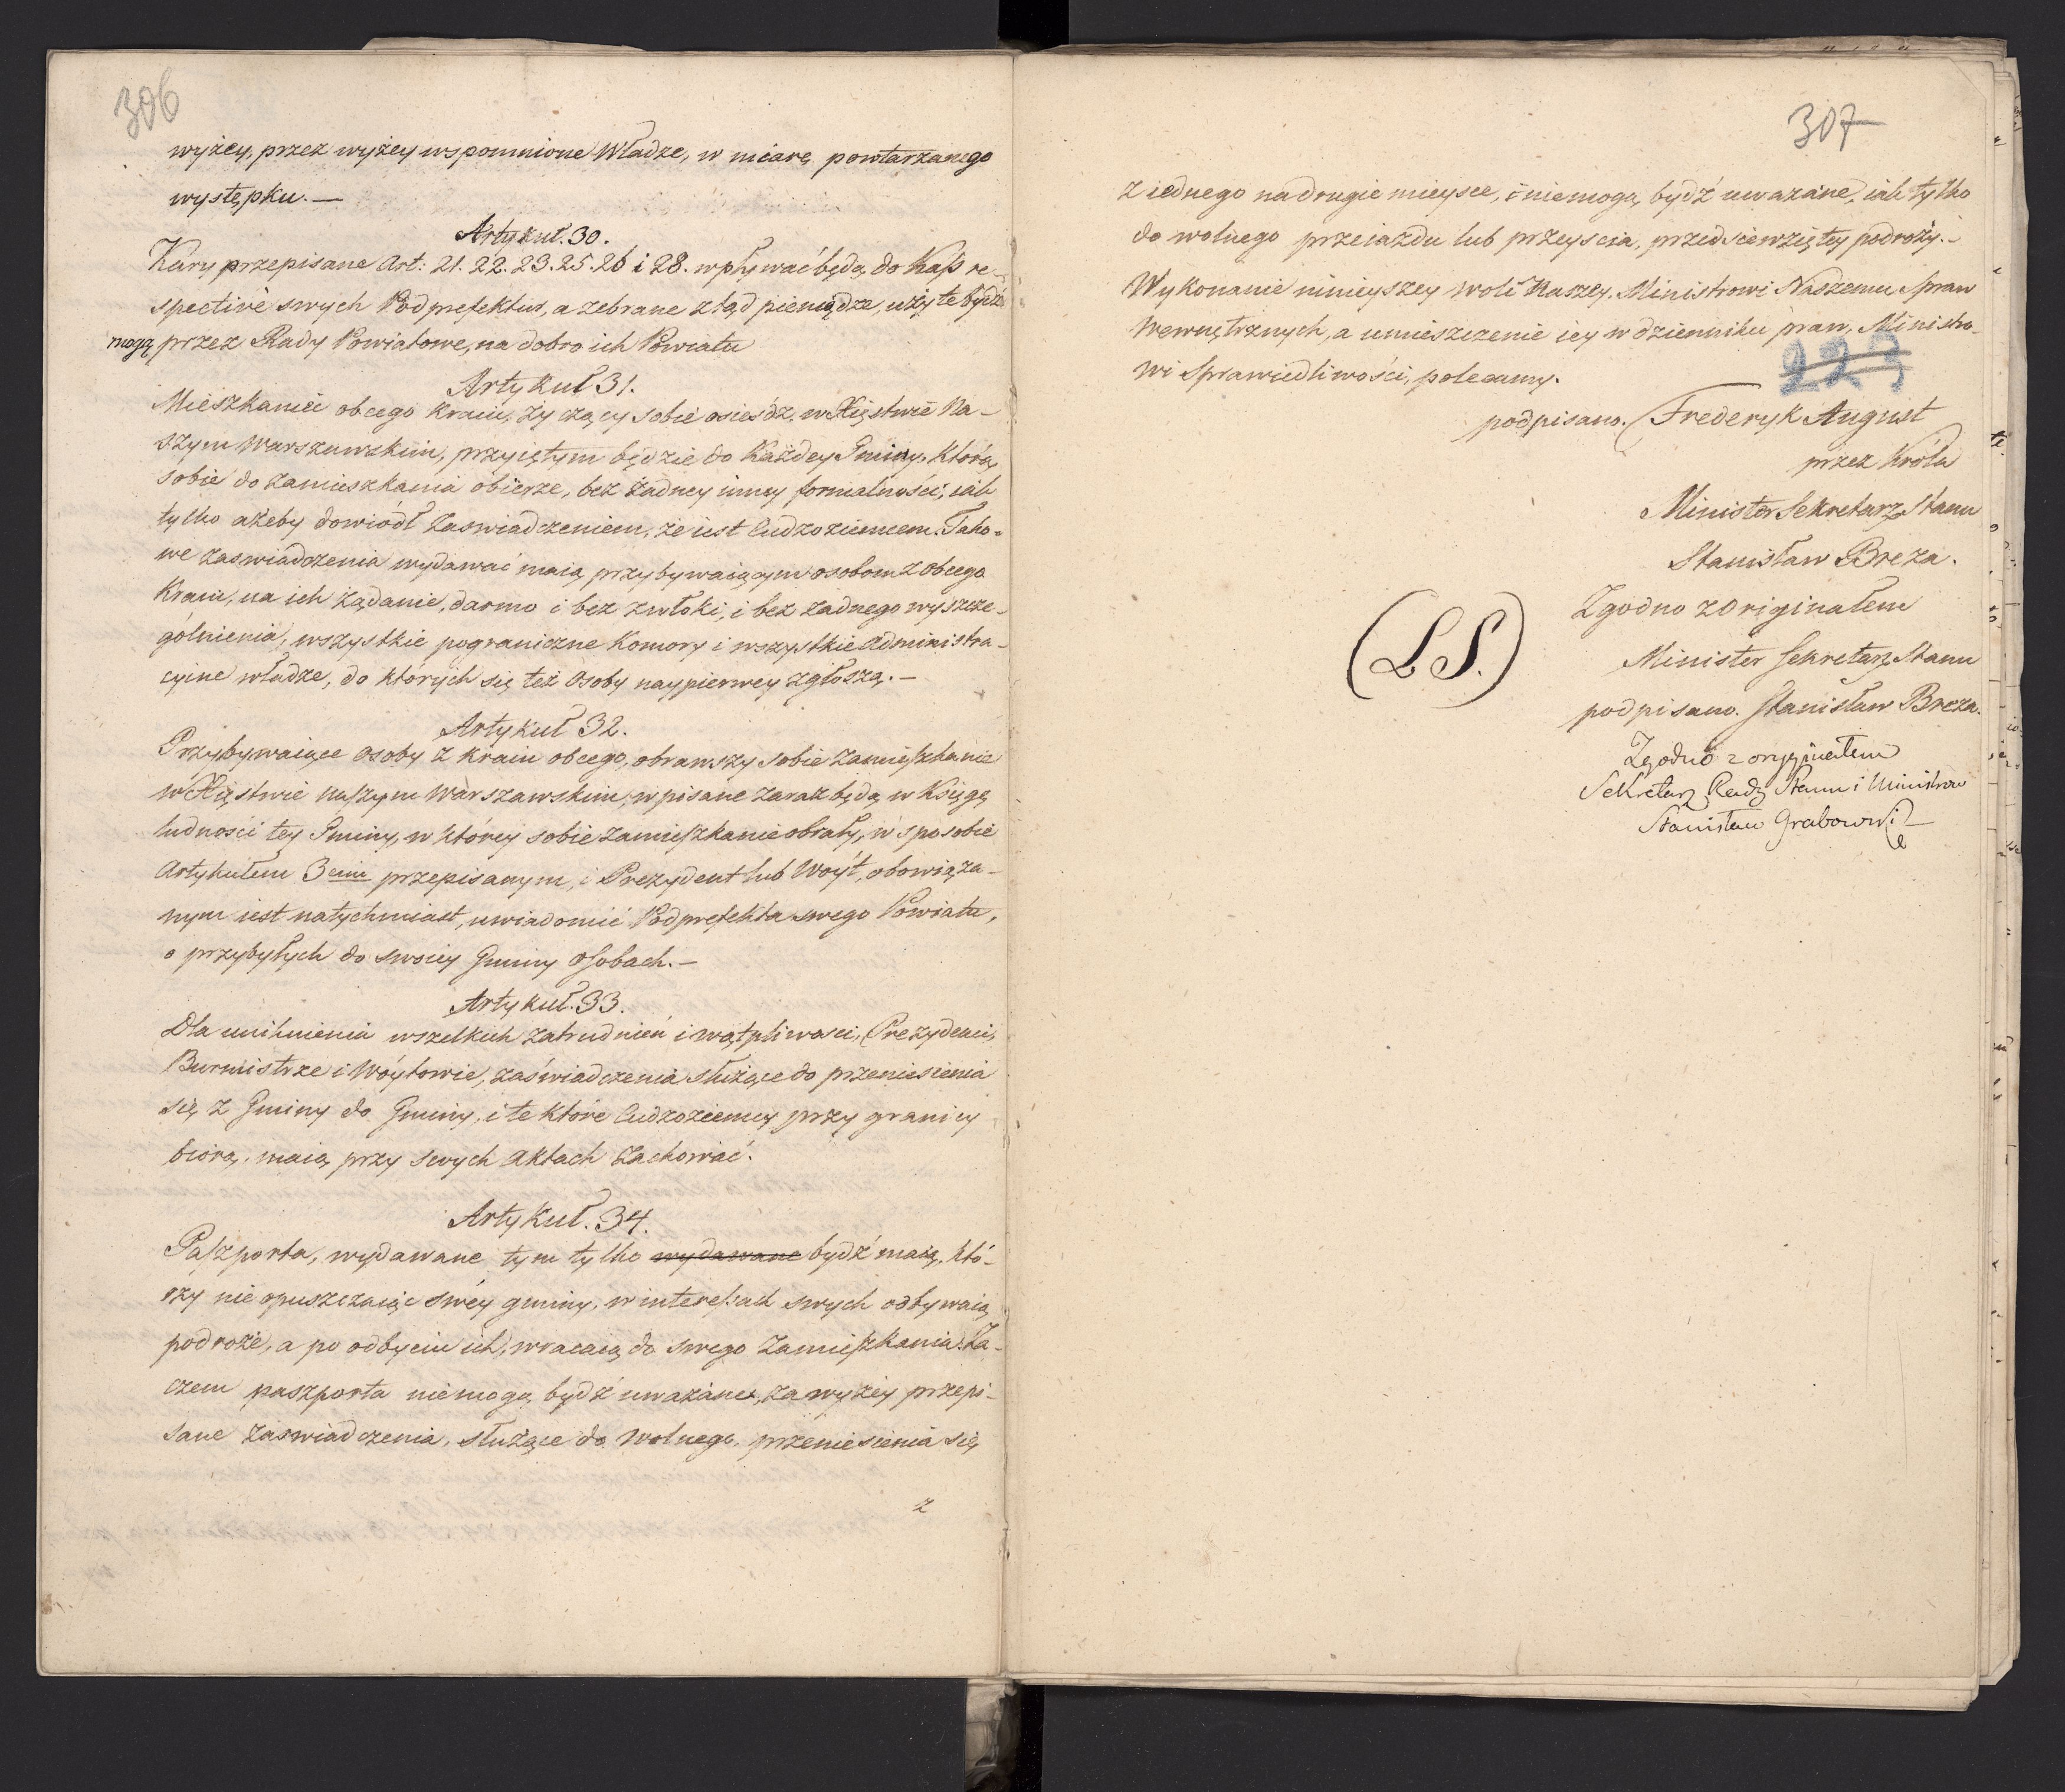 306
wyżey, przez wyżey wspomnione Władze, w miarę powtarzanego
występku. —
Artykuł. 30.
Kary przepisane Art: 21. 22. 23. 25. 26 i 28. wpływać będą do Kass re-
spective swych Podprefektur, a zebrane ztąd pieniądze, użyte bydź
mogą przez Rady Powiatowe, na dobro ich Powiatu
Artykuł 31.
Mieszkaniec obcego kraiu, życzący sobie osieśdz, w Xięstwie Na-
szym Warszawskim, przyiętym będzie do każdey Gminy, którą
sobie do zamieszkania obierze, bez żadney inney formalności, iak
tylko ażeby dowiódł zaswiadczeniem, że iest Cudzoziemcem. Tako-
we zaswiadczenia wydawać maią przybywaiącym osobom z obcego
Kraiu, na ich żądanie, darmo i bez zwłoki, i bez żadnego wyszcze-
gólnienia, wszystkie pograniczne Komory i wszystkie administra-
cyine władze, do których się też Osoby naypierwey zgłoszą. —
Artykuł 32.
Przybywaiące osoby z kraiu obcego, obrawszy sobie zamieszkanie
w Xięstwie naszym Warszawskim, wpisane zaraz będą w Księgę
ludności tey Gminy, w którey sobie zamieszkanie obrały, w sposobie
Artykułem 3cim przepisanym, i Prezydent lub Woyt, obowiąza-
nym iest natychmiast, uwiadomić Podprefekta swego Powiatu,
o przybyłych do swoiey Gminy osobach. —
Artykuł. 33.
Dla uniknienia wszelkich zatrudnień i wątpliwosci, Prezydenci,
Burmistrze i Wóytowie, zaświadczenia służące do przeniesienia
się z Gminy do Gminy, i te które Cudzoziemcy przy granicy
biorą, maią przy swych aktach zachować.
Artykuł. 34.
Paszporta, wydawane tym tylko wydawane bydź maią, któ-
rzy nie opuszczaiąc swéy gminy, w interessach swych odbywaią
podroże, a po odbyciu ich, wracaią do swego zamieszkania. Za-
czem paszporta niemogą bydź uważane, za wyżey przepi-
sane zaswiadczenia, służące do wolnego, przeniesienia się
z
307
z iednego na drugie mieysce, i niemogą bydź uważane, iak tylko
do wolnego przeiazdu lub przeyscia, przedsiewziętey podroży. —
Wykonanie ninieyszey woli Naszey. Ministrowi Naszemu Spraw
Wewnętrznych, a umieszczenie iey w dzienniku praw, Ministro-
wi Sprawiedliwości, polecamy.
227
podpisano. Fryderyk August
przez Króla
Minister Sekretarz Stanu
Stanisław Breza.
Zgodno z Originałem
(L S.)
Minister Sekretarz Stanu
podpisano. Stanisław Breza.
Zgodno z oryginałem
Sekretarz Rady Stanu i Ministrów
Stanisław Grabowski